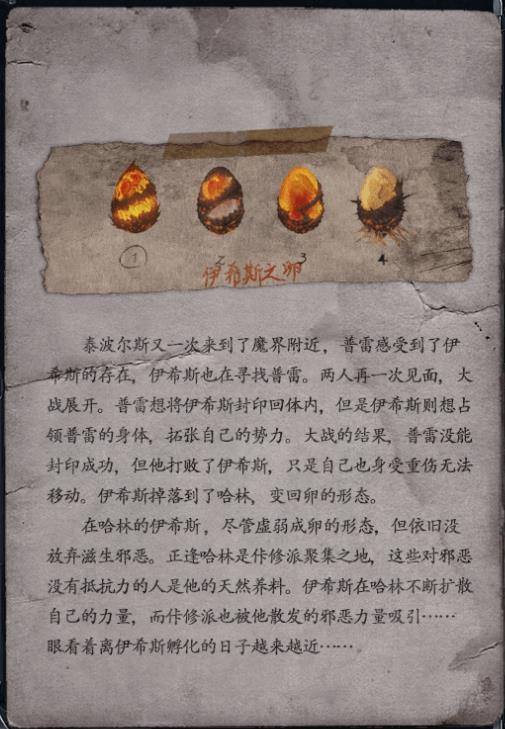 ① 2 3 4
伊希斯之卵
泰波尔斯又一次来到了魔界附近，普雷感受到了伊
希斯的存在，伊希斯也在寻找普雷。两人再一次见面，大
战展开。普雷想将伊希斯封印回体内，但是伊希斯则想占
领普雷的身体，拓张自己的势力。大战的结果，普雷没能
封印成功，但他打败了伊希斯，只是自己也身受重伤无法
移动。伊希斯掉落到了哈林，变回卵的形态。
在哈林的伊希斯，尽管虚弱成卵的形态，但依旧没
放弃滋生邪恶。正逢哈林是作修派聚集之地，这些对邪恶
没有抵抗力的人是他的天然养料。伊希斯在哈林不断扩散
自己的力量，而作修派也被他散发的邪恶力量吸引……
眼看着离伊希斯孵化的日子越来越近……